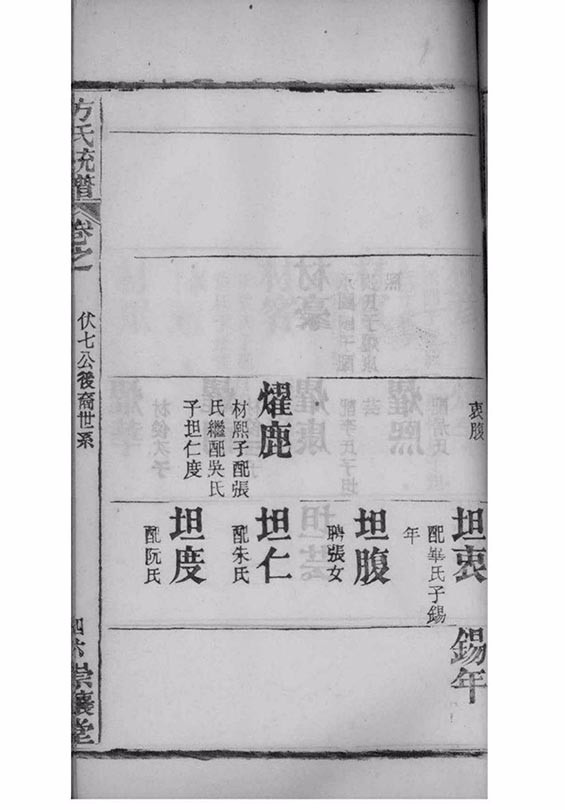 衷腹
坦衷
配畢氏子錫
年
錫年
坦腹
聘張女
燿鹿
材熙子配張
氏繼配吳氏
子坦仁度
坦仁
配朱氏
坦度
配阮氏
方氏統譜
卷之
伏七公後裔世系
四六
崇讓堂